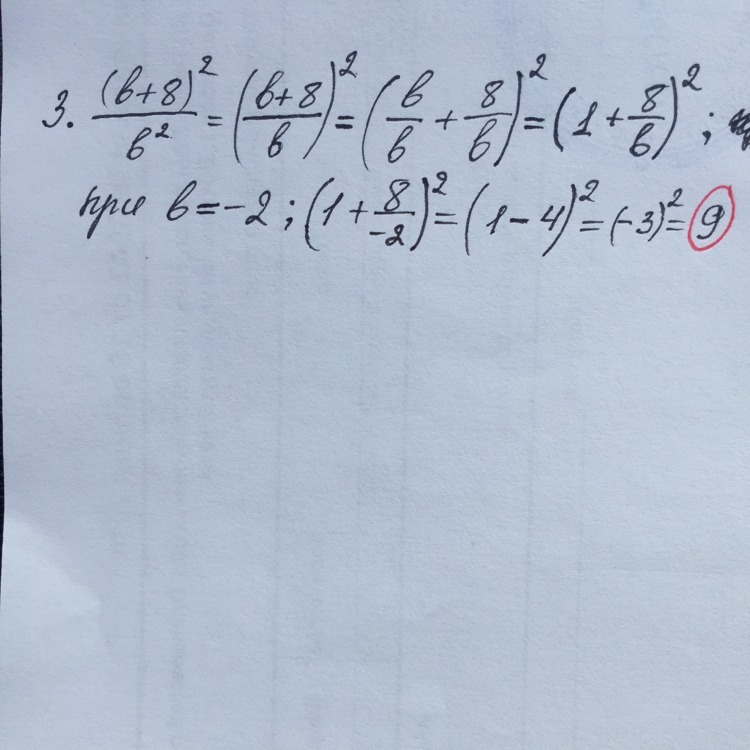 3. (b+8)²/b² = ((b+8)/b)² = (b/b + 8/b)² = (1 + 8/b)²;
при b = -2; (1 + 8/-2)² = (1 - 4)² = (-3)² = 9